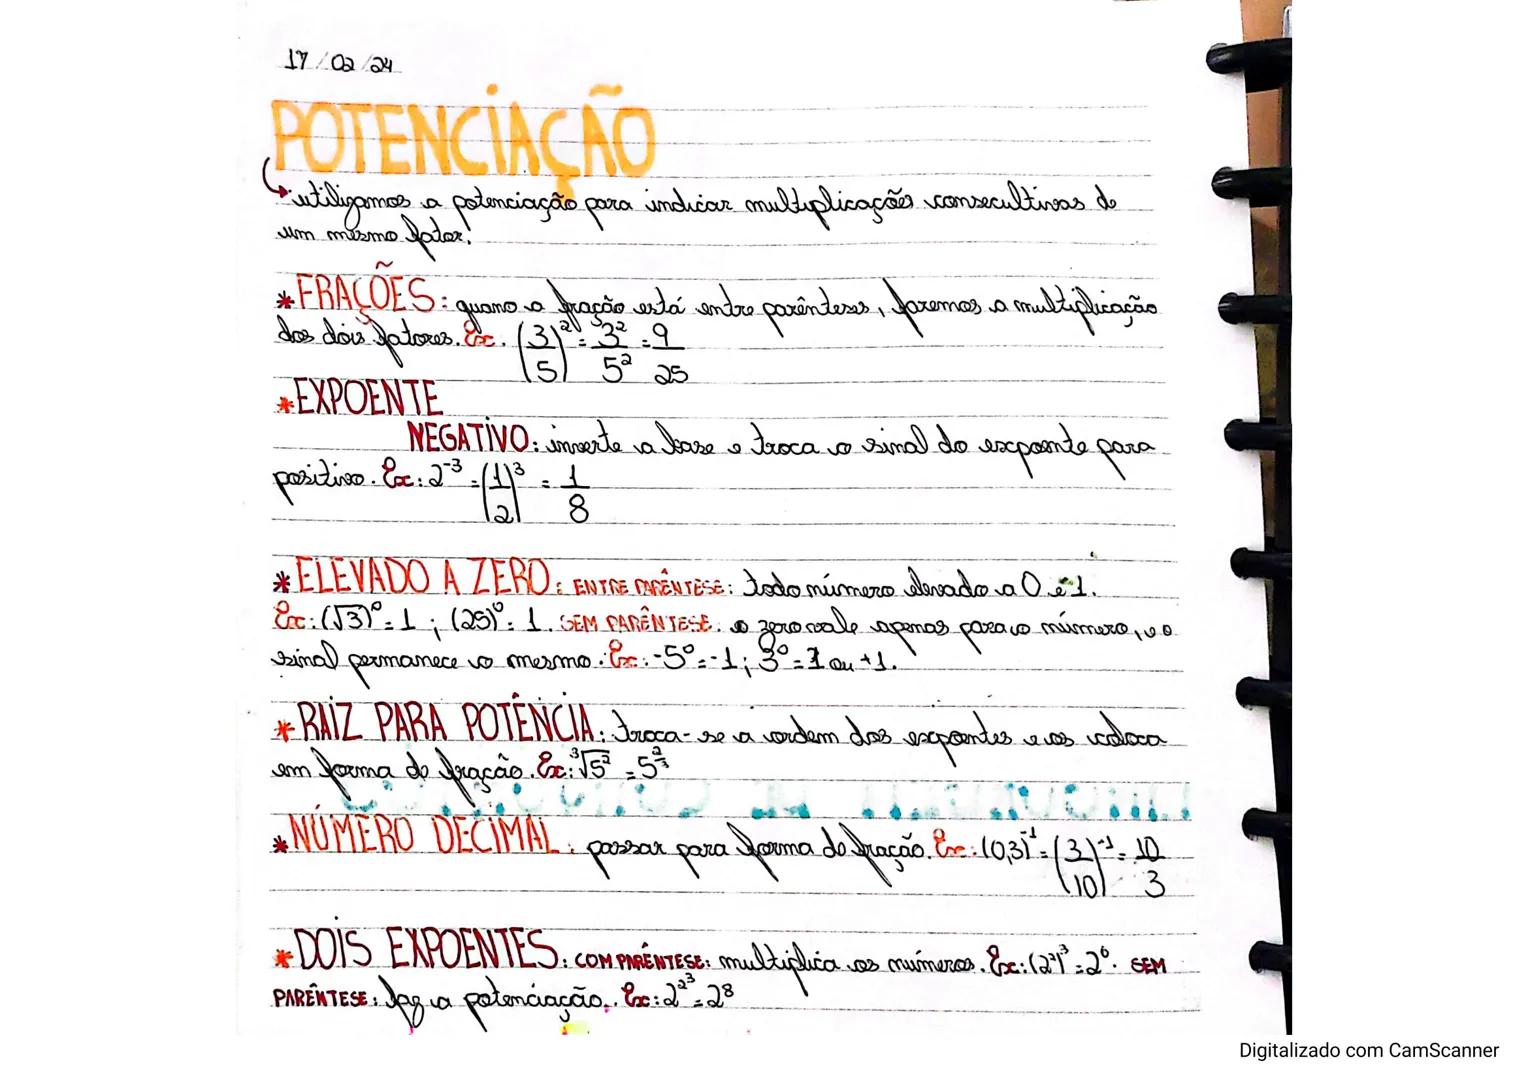 17/02/24
POTENCIAÇÃO
utilizamos a potenciação para indicar multiplicações consecultivas de
um mesmo fator.
* FRAÇÕES: quano a fração está entre parênteses, faremos a multiplicação
dos dois fatores. Ex. (3/5)² = 3²/5² = 9/25
* EXPOENTE
NEGATIVO: inverte a base e troca o sinal do expoente para
positivo. Ex: 2⁻³ = (1/2)³ = 1/8
* ELEVADO A ZERO: ENTRE PARÊNTESE: todo número elevado a 0 é 1.
Ex: (√3)⁰ = 1 ; (25)⁰ = 1. SEM PARÊNTESE: o zero vale apenas para o número, e o
sinal permanece o mesmo. Ex: -5⁰ = -1 ; 3⁰ = 1 ou +1.
* RAIZ PARA POTÊNCIA: troca-se a ordem dos expoentes e os coloca
em forma de fração. Ex: ³√5² = 5^(2/3)
* NÚMERO DECIMAL: passar para forma de fração. Ex: (0,3)⁻¹ = (3/10)⁻¹ = 10/3
* DOIS EXPOENTES: COM PARÊNTESE: multiplica os números. Ex: (2²)³ = 2⁶. SEM
PARÊNTESE: faz a potenciação. Ex: 2^2^3 = 2⁸
Digitalizado com CamScanner